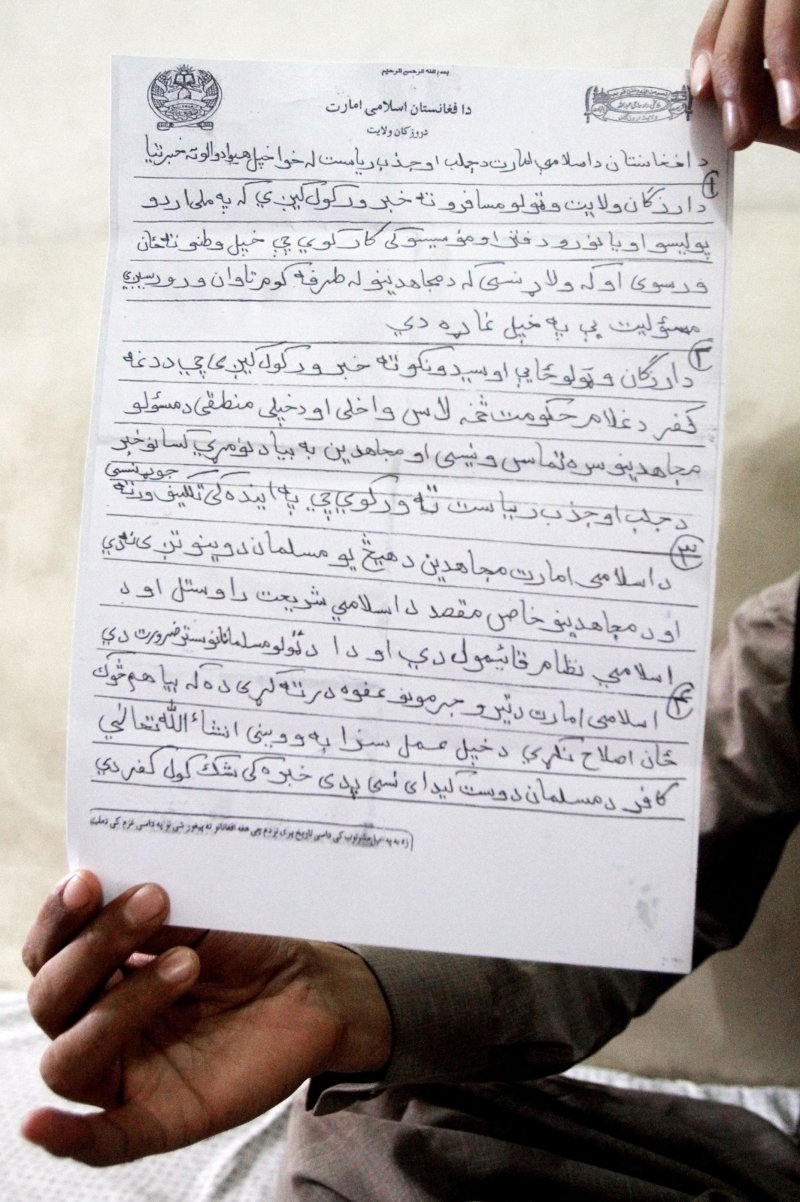 بسم الله الرحمن الرحیم
د افغانستان اسلامی امارت
دروزګان ولایت
د افغانستان د اسلامي امارت د جلب او جذب ریاست له خوا خپل هیوادوالو ته خبرتیا
۱ د ارزګان ولایت وټولو مسافرو ته خبر ورکول کیږي که په ملي اردو
پولیسو او یا نورو دفاتر او مؤسیسو کی کار کوي چې خپل وطنو ته ځان
ورسوی او که ولاړ نسی که د مجاهدینو له طرفه کوم تاوان ورورسیږي
مسؤلیت یې په خپل غاړه دي
۲ د ارزګان وټولو ځایي اوسیدونکو ته خبر ورکول کیږی چې د دغه
کفر د غلام حکومت څخه لاس واخلی او د خپلی منطقی د مسؤلو
مجاهدینو سره تماس ونیسی او مجاهدین به بیا د نوموړي کسانو خبر
د جلب او جذب ریاست ته ورکوي چې په اینده کی تکلیف ورته
جوړ نسی
۳ د اسلامی امارت مجاهدین د هیڅ یو مسلمان د وینو تږی نه دي
او د مجاهدینو خاص مقصد د اسلامي شریعت راوستل او د
اسلامي نظام قائیمول دي او دا د ټولو مسلمانانو ستر ضرورت دي
۴ اسلامی امارت د تیرو جرمونو عفوه درته کړی ده که بیا هم څوک
ځان اصلاح نکړي د خپل عمل سزا به وویني انشاءالله تعالی
کافر د مسلمان دوست کیدای نسی پدی خبره کی شک کول کفر دي